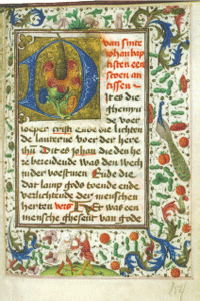 van sinte
iohan bap
tisten een
seven an
tiffen
It es die
ghemyn
de voer
loeper cristi Ende die lichten
de lanterne voer den here
thu Dit es iohan die den he
re bereidende was den wech
in der woestinen Ende die
dat lamp gods toende ende
verlichtende der menschen
herten vers Het was een
mensche ghesent van gode